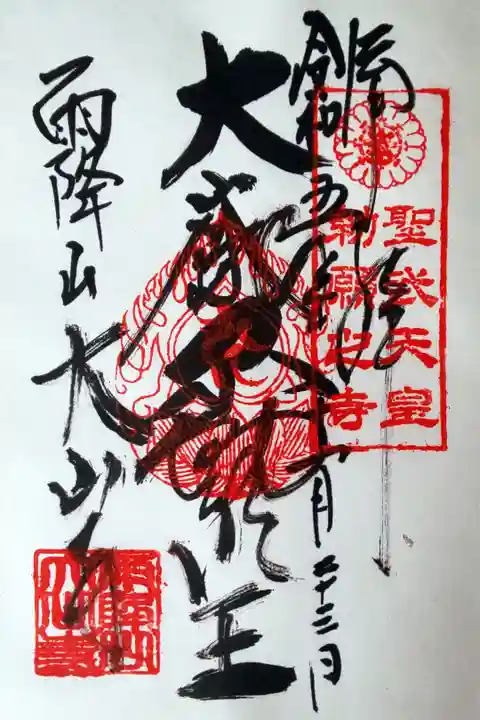 奉拝
令和五年十一月二十三日
聖武天皇
勅願之寺
大威徳明王
雨降山大山寺
雨降山
大山寺